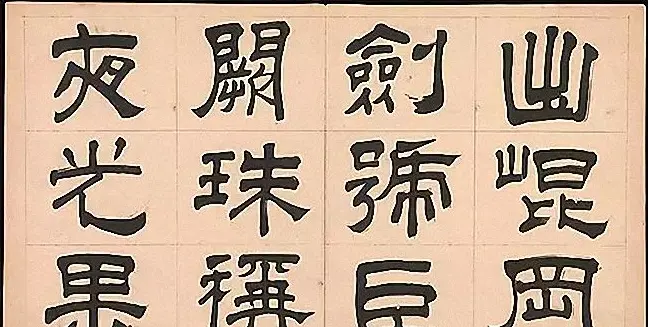 出崐岡
劍號巨
闕珠稱
夜光果